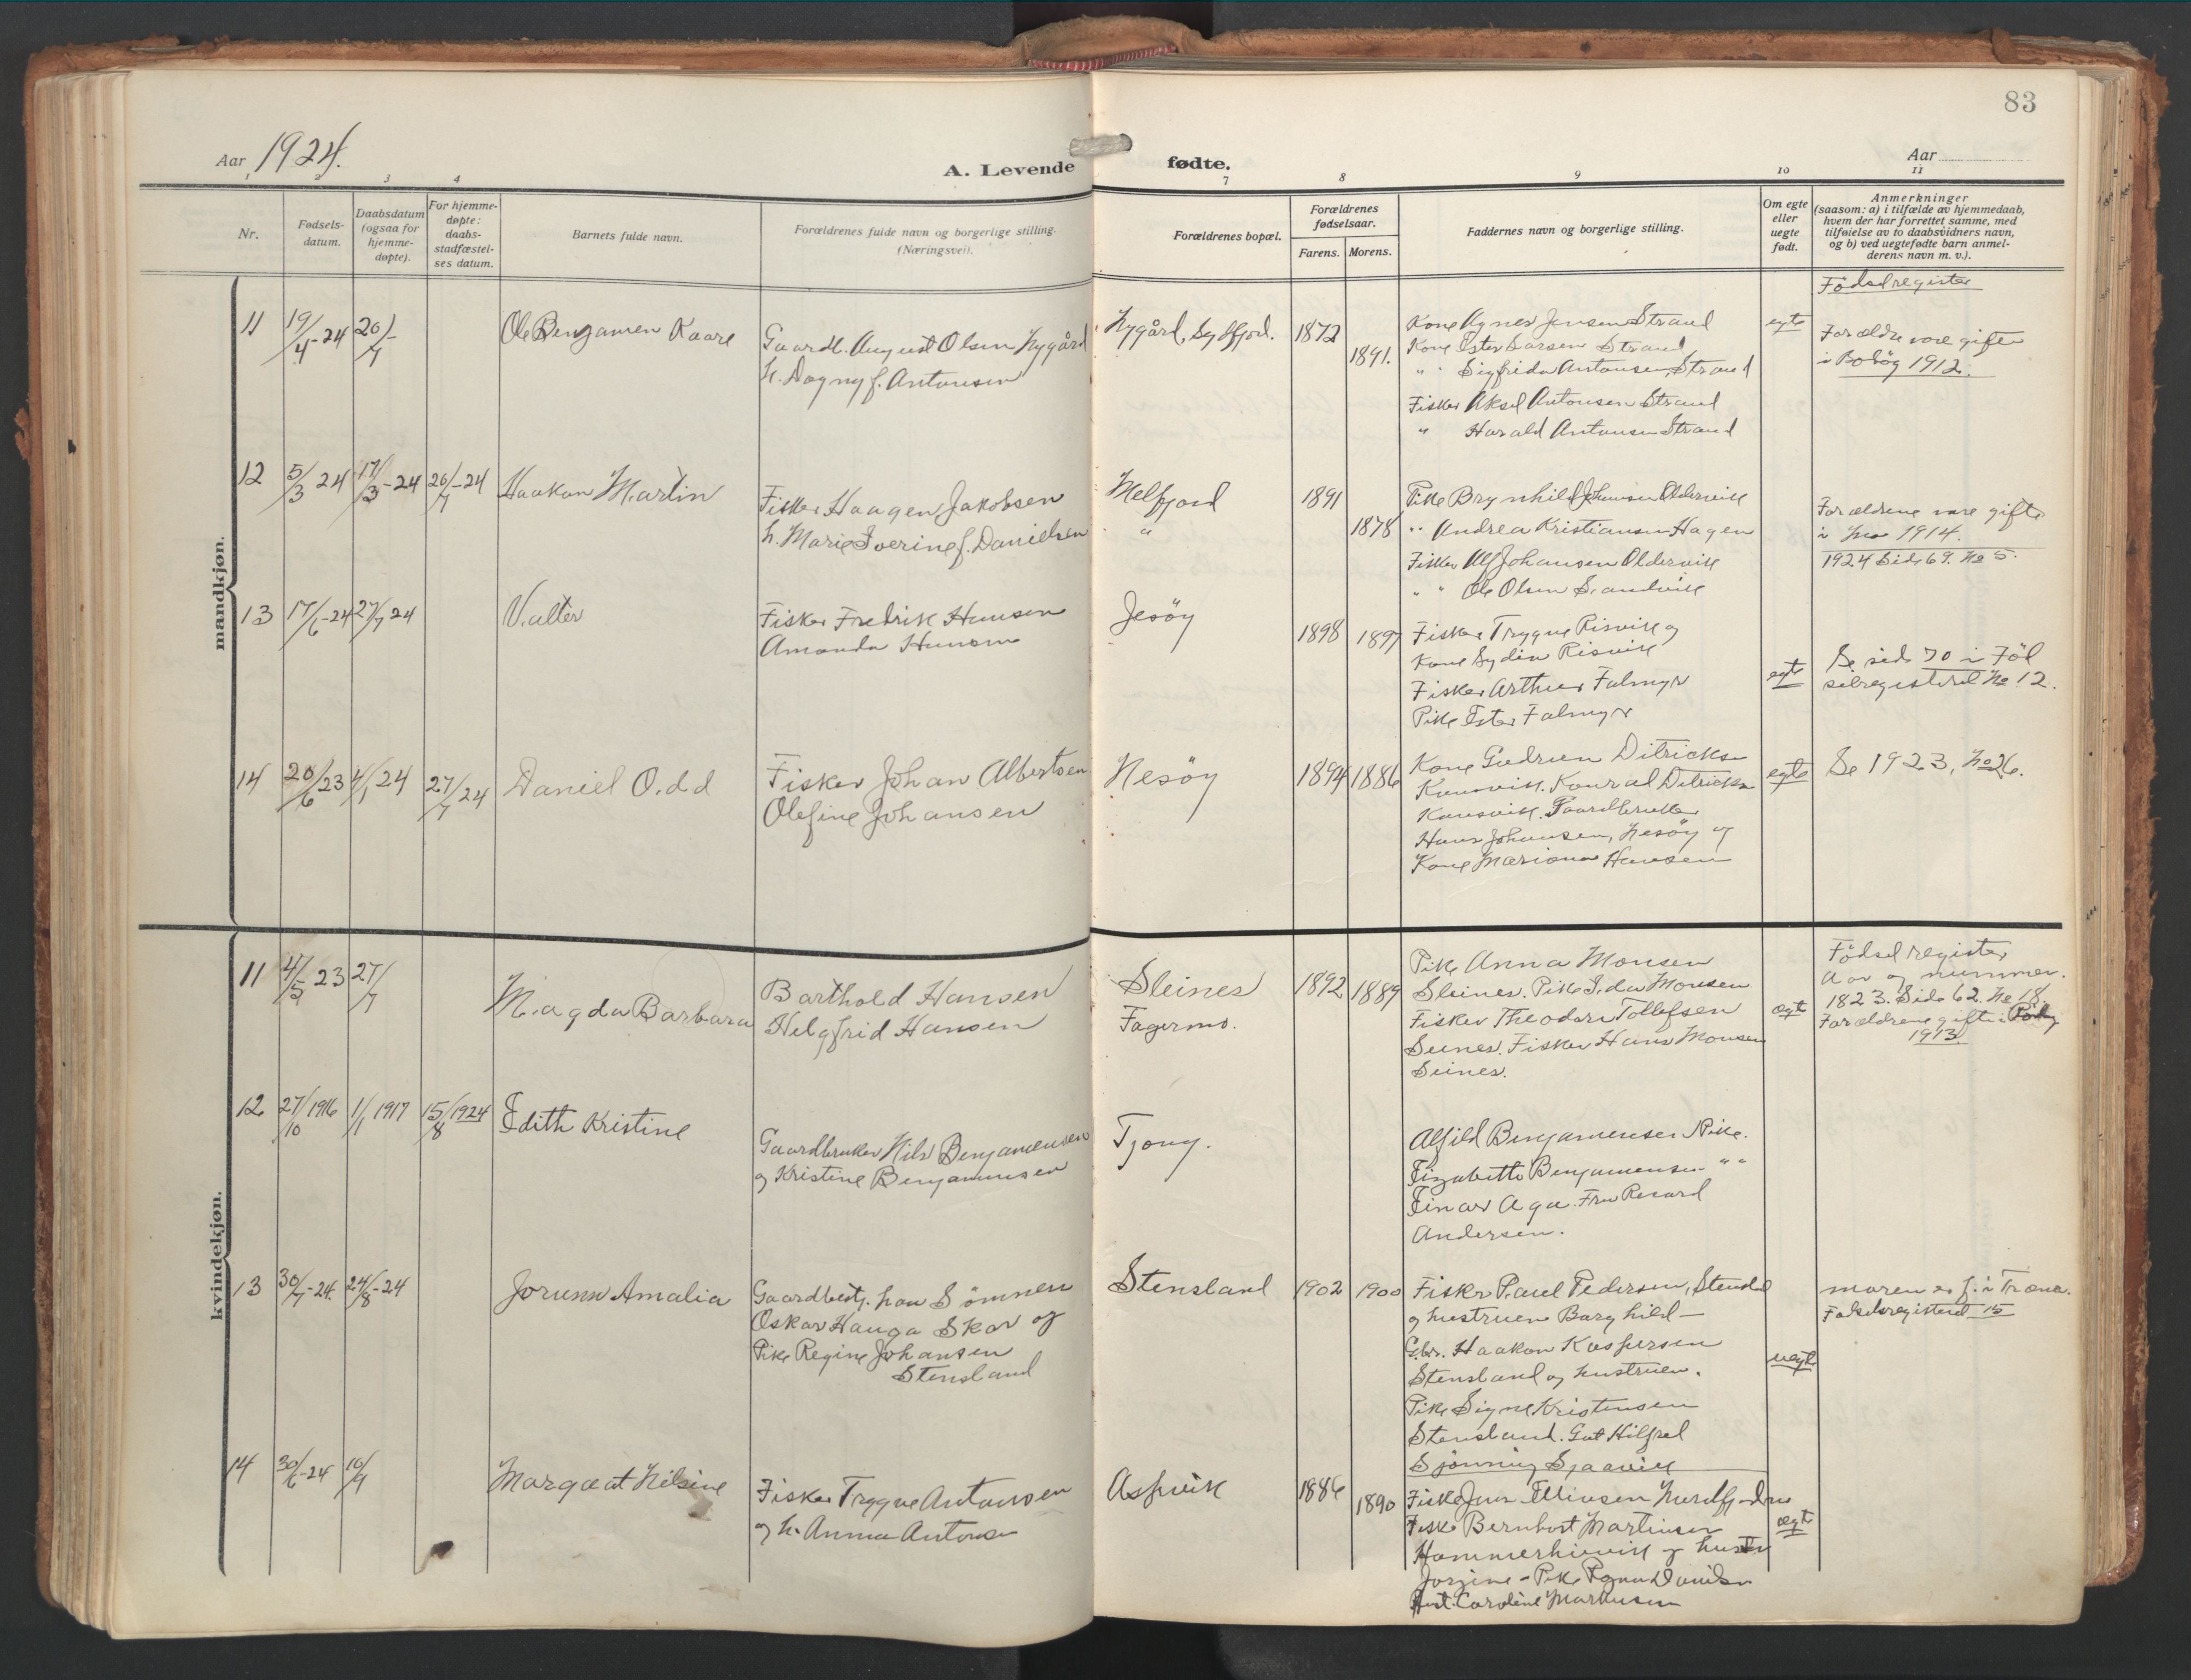 83
Aar 1924.
A. Levende fødte.
Aar
1 2 3 4 7 8 9 10 11
Nr.
Fødsels-
datum.
Daabsdatum
(ogsaa for
hjemme-
døpte).
For hjemme-
døpte:
daabs-
stadfæstel-
ses datum.
Barnets fulde navn.
Forældrenes fulde navn og borgerlige stilling.
(Næringsvei).
Forældrenes bopæl.
Forældrenes
fødselsaar.
Farens. Morens.
Faddernes navn og borgerlige stilling.
Om egte
eller
uegte
født.
Anmerkninger
(saasom: a) i tilfælde av hjemmedaab,
hvem der har forrettet samme, med
tilføielse av to daabsvidners navn,
og b) ved uegtefødte barn anmel-
derens navn m. v.).
mandkjøn.
Födselregister
11 19/4-24 20/7- Ole Benjamen Kaare
Gaardb. August Olsen Nygård
h. Dagny f. Antonsen
Nygård, 1872 1891.
Kone Agnes Jensen Strand
Kone Ester Larsen Strand
" " Sigfrida Antonsen, Strand
Fisker Aksel Antonsen Strand
" Harald Antonsen Strand
egte
Forældre vare gifte
i 1912.
12 5/3 24 17/3-24 20/7-24 Haakon Martin
Fisker Haagen Jakobsen
h. Marie Iverine f. Danielsen
Melfjord
"
1891 1878
Pike Brynhild Johansen Oldervik
" Andrea Kristiansen Hagen
Fisker Alf Johansen Oldervik
" " Ole Olsen Sandvik
Forældrene vare gifte
i 1914.
1924 Side 69. No 5.
13 17/6-24 27/7 24 Valter
Fisker Fredrik Hansen
Amanda Hansen
Jesöy
1898 1897
Fisker Trygve Risvik og
Kone Lydia Risvik
Fisker Arthur Falmyr
Pike Ester Falmyr
egte
Se side 70 i Föd
selregisteret No 12.
14 20/6 23 4/1 24 27/7 24 Daniel Odd
Fisker Johan Albertsen
Olefine Johansen
Nesöy
1894 1886
Kone Gudrun Ditricks
Kunsvik. Konrad Ditricksen
Kunsvik. Gaardbruker
Hans Johansen, Nesöy og
Kone Mariana Hansen
egte
Se 1923, No 26.
kvindekjøn.
11 4/5 23 27/7 Magda Barbara
Barthold Hansen
Helgfrid Hansen
Sleines
Fagermo.
1892 1889
Pike Anna Monsen
Sleines. Pike Ida Monsen
Fisker Theodor Tollefsen
Seines. Fisker Hans Monsen
Seines.
egte
Födselregister
Aar og nummer.
1823. Side 62. No 18.
Forældrene gifte i
1913.
12 27/10 1916 1/1 1917 15/8 1924 Edith Kristine
Gaardbruker Nils Benjamensen
og Kristine Benjaminsen
Tjong.
Alfild Benjamensen Pike.
Elizabeth Benjamensen " "
Einar Aga. Fru Recard
Andersen.
13 30/7-24. 24/8-24 Jorunn Amalia
Gaardbestj. paa Sömnen
Oskar Hauga Skar og
Pike Regine Johansen
Stensland
Stensland
1902 1900
Fisker Paul Pedersen, Stensland
og hustruen Borghild —
Gbr. Haakon Kaspersen
Stensland og hustruen.
Pike Signe Kristensen
Stensland. Gut Hilfred
Sjönning Sjaavik
uegte
moren er f. i Træna.
Födselsregisteret 15
14 30/6-24 10/9 Margaat Nilsine
Fisker Trygve Antonsen
og h. Anna Antonsen
Aspvik
1886 1890
Fisker Jens Ellinsen
Fisker Bernhart Martinsen
og hustru
Jorgine - Pike Danielsen
Hust. Caroline Markusen
egte